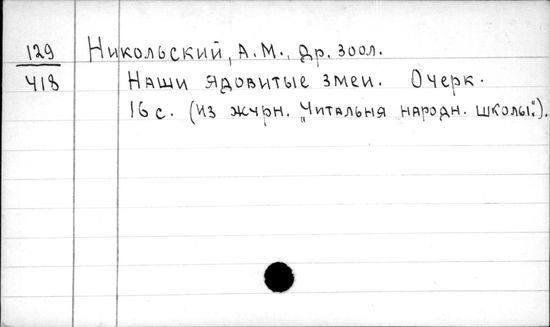 129 Никольский, А.М., Др. зоол.
418 Наши ядовитые змеи. Очерк.
16 с. (из журн. „Читальня народн. школы“).